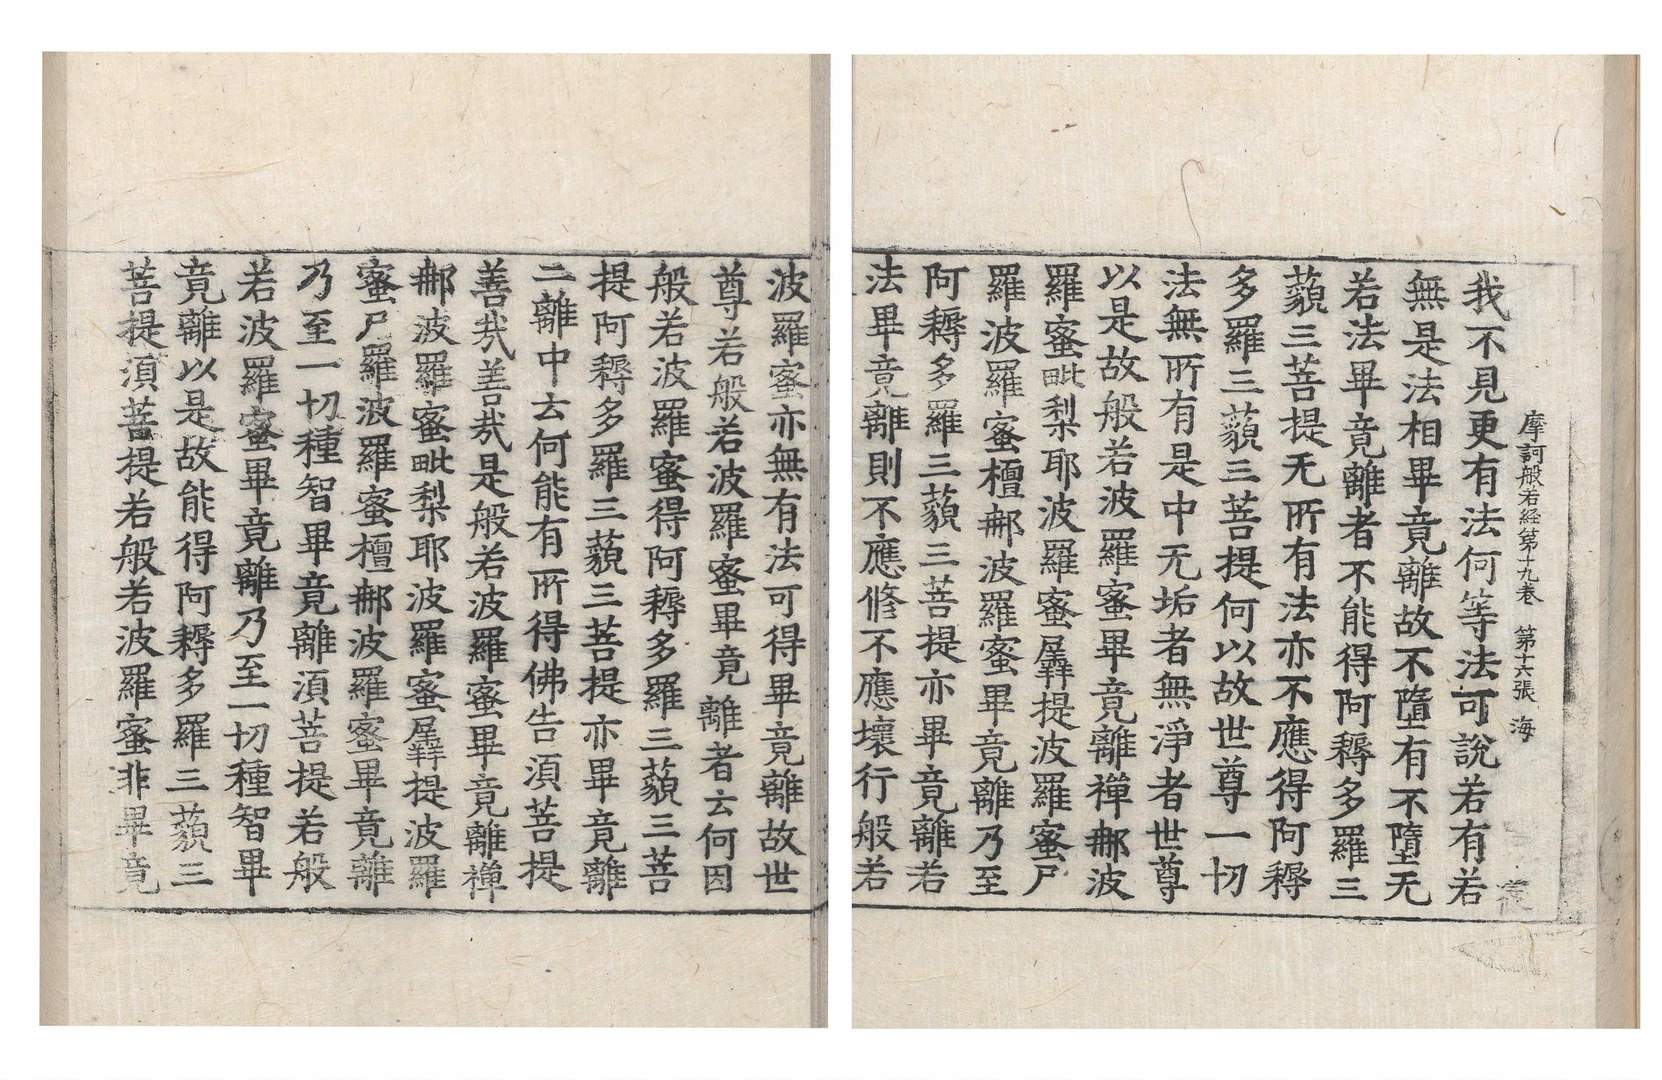 摩訶般若経第十九巻 第十六張 海
我不見更有法何等法可說若有若
無是法相畢竟離故不墮有不墮无
若法畢竟離者不能得阿耨多羅三
藐三菩提无所有法亦不應得阿耨
多羅三藐三菩提何以故世尊一切
法無所有是中无垢者無淨者世尊
以是故般若波羅蜜畢竟離禪那波
羅蜜毗梨耶波羅蜜羼提波羅蜜尸
羅波羅蜜檀那波羅蜜畢竟離乃至
阿耨多羅三藐三菩提亦畢竟離若
法畢竟離則不應修不應壞行般若
波羅蜜亦無有法可得畢竟離故世
尊若般若波羅蜜畢竟離者云何因
般若波羅蜜得阿耨多羅三藐三菩
提阿耨多羅三藐三菩提亦畢竟離
二離中云何能有所得佛告湏菩提
善㢤善㢤是般若波羅蜜畢竟離禪
那波羅蜜毗梨耶波羅蜜羼提波羅
蜜尸羅波羅蜜檀那波羅蜜畢竟離
乃至一切種智畢竟離湏菩提若般
若波羅蜜畢竟離乃至一切種智畢
竟離以是故能得阿耨多羅三藐三
菩提湏菩提若般若波羅蜜非畢竟